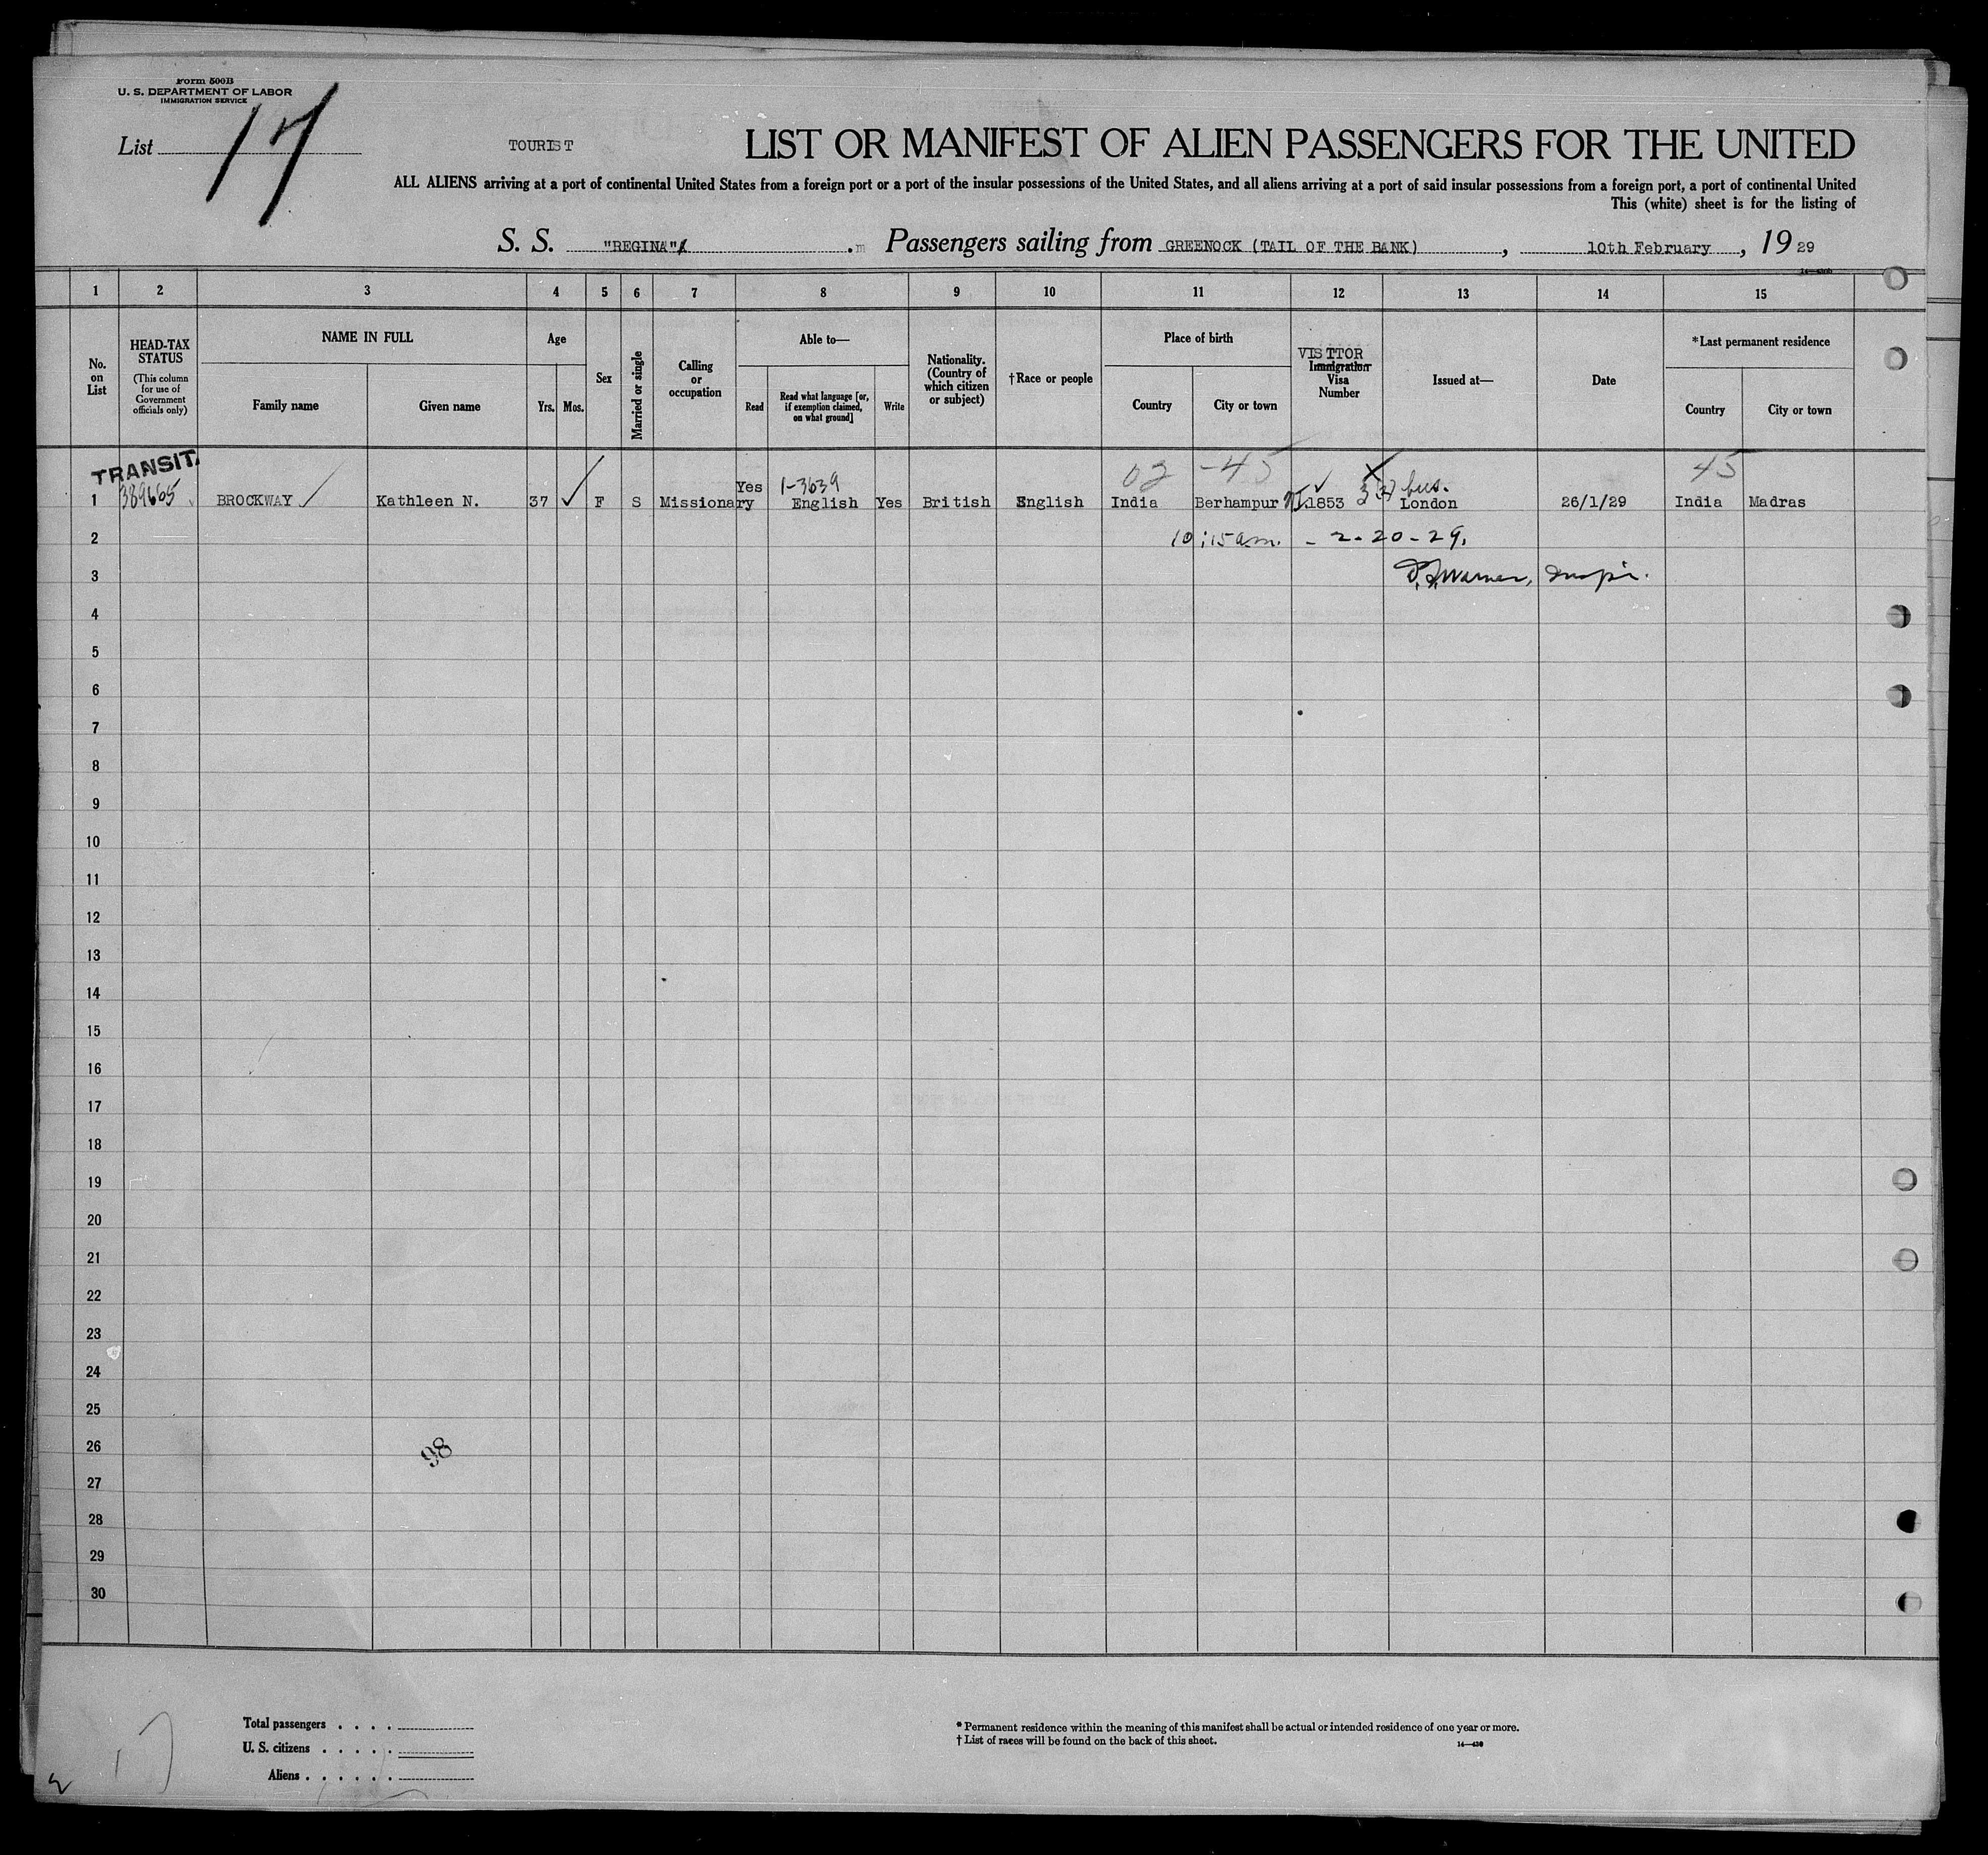 Form 500B
U. S. DEPARTMENT OF LABOR
IMMIGRATION SERVICE
List 17
TOURIST
LIST OR MANIFEST OF ALIEN PASSENGERS FOR THE UNITED
ALL ALIENS arriving at a port of continental United States from a foreign port or a port of the insular possessions of the United States, and all aliens arriving at a port of said insular possessions from a foreign port, a port of continental United
This (white) sheet is for the listing of
S. S. "REGINA" Passengers sailing from GREENOCK (TAIL OF THE BANK), 10th February, 1929
1 2 3 4 5 6 7 8 9 10 11 12 13 14 15
No. on List
HEAD-TAX STATUS
(This column for use of Government officials only)
NAME IN FULL
Family name Given name
Age
Yrs. Mos.
Sex
Married or single
Calling or occupation
Able to—
Read
Read what language [or, if exemption claimed, on what ground]
Write
Nationality. (Country of which citizen or subject)
†Race or people
Place of birth
Country City or town
VISITOR
Immigration Visa Number
Issued at—
Date
*Last permanent residence
Country City or town
TRANSIT
389665 1-3639 02 -45 bus. 45
1 BROCKWAY Kathleen N. 37 F S Missionary Yes English Yes British English India Berhampur 1853 London 26/1/29 India Madras
2 10:15 a.m. - 2-20-29.
3 Warner, Inspr.
4
5
6
7
8
9
10
11
12
13
14
15
16
17
18
19
20
21
22
23
24
25
26
27
28
29
30
98
Total passengers . . . .
U. S. citizens . . . . .
Aliens . . . . . .
* Permanent residence within the meaning of this manifest shall be actual or intended residence of one year or more.
† List of races will be found on the back of this sheet.
14—430
17